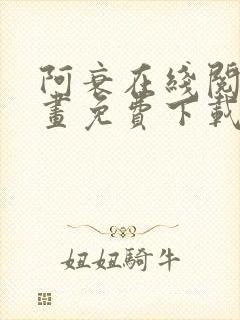 阿衰在綫閱
畫免費下載
妞妞騎牛